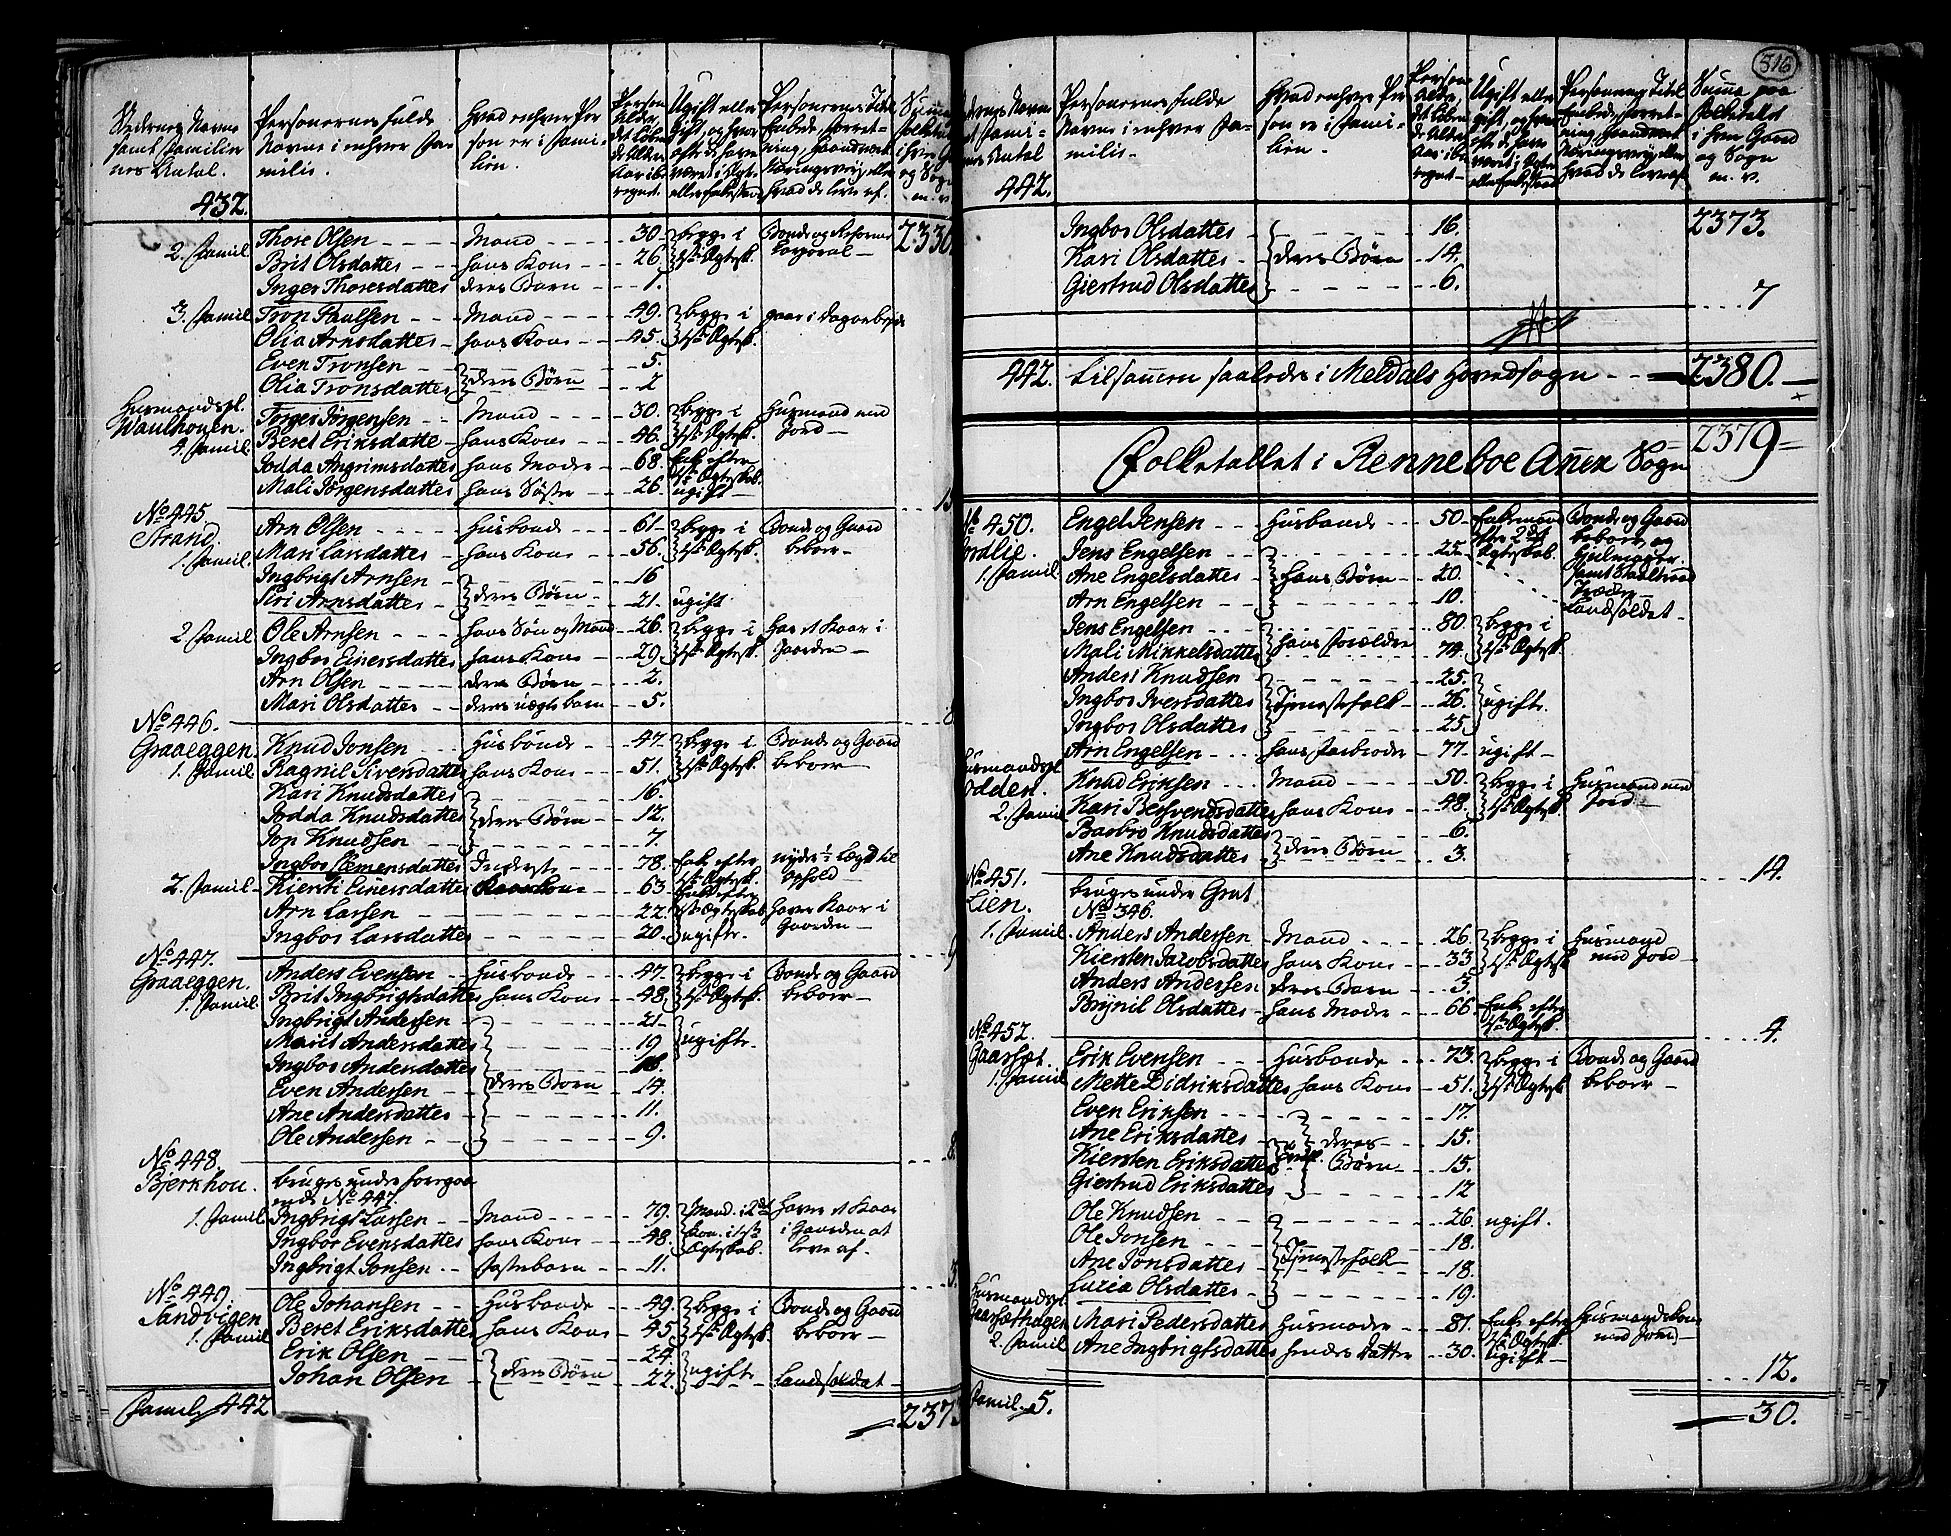 Stedernes Navne samt Familiernes Antal.
Personernes fulde Navne i enhver Familie.
hvad enhver Person er i Familien.
432.
2330
2. Famil Thore Olsen - Mand - 30. begge i 1ste Ægtesk. Bonde og Corporal
Brit Olsdatter - hans Kone - 26.
Inger Thoresdatter deres Barn - 1.
3. Famil Tron Paulsen - Mand - 49. begge i 1ste Ægtesk. gaar i Dagarbejde
Olia Arnsdatter - hans Kone - 45.
Even Tronsen - deres Børn - 5.
Olia Tronsdatter - 2
Husmandspl. Waulhouen.
4. Famil. Torger Jørgensen - Mand - 30. begge i 1ste Ægtesk. Husmand med Jord
Beret Eriksdatter - hans Kone - 46.
Jodda Angrimsdatter hans Moder - 68. Enke efter 1ste Ægteskab.
Mali Jørgensdatter hans Søster - 26. ugift
No 445 Strand.
1. Famil. Arn Olsen - Husbonde - 61. begge i 1ste Ægtesk. Bonde og Gaard beboer
Mari Larsdatter - hans Kone - 56.
Ingbrigt Arnsen - deres Børn - 16
Siri Arnsdatter - 21. ugift
2. Famil Ole Arnsen - hans Søn og Mand - 26. begge i 1ste Ægtesk. Har et Kaar i Gaarden
Ingbor Einersdatter hans Kone - 29.
Arn Olsen - deres Børn - 2.
Mari Olsdatter - deres uægte barn - 5.
8
No 446. Graaeggen.
1. Famil Knud Jonsen - Husbonde - 47. begge i 1ste Ægtesk. Bonde og Gaard beboer
Ragnil Siversdatter hans Kone - 51.
Kari Knudsdatter - 16.
Jodda Knudsdatter deres Børn - 12.
Jon Knudsen - 7.
Ingbor Clemensdatter Inderste - 78. Enke efter 1ste Ægtesk. nyder Lægd til Ophold
2. Famil Kiersti Einersdatter - 63 Enke efter 1ste Ægteskab Haver Kaar i Gaarden
Arn Larsen - 22.
Ingbor Larsdatter - 20. ugifte.
9
No 447. Graaeggen.
1. Famil. Anders Evensen - Husbonde - 47. begge i 1ste Ægtesk. Bonde og Gaard beboer
Brit Ingbrigtsdatter hans Kone - 48.
Ingbrigt Andersen - 21 ugifte.
Marit Andersdatter - 19
Ingbor Andersdatter
Even Andersen - deres Børn - 14.
Ane Andersdatter - 11.
Ole Andersen - 9.
8.
No 448 Bjerkhou. bruges under foregaaende No 447.
1. Famil Ingbrigt Larsen - Mand - 79. Mand i 2det Kon. i 1ste Ægteskab. Haver et Kaar i Gaarden at leve af.
Ingbor Evensdatter hans Kone - 48.
Ingbrigt Jonsen - Fosterbarn - 11.
3.
No 449. Sandvigen
1. Famil Ole Johansen - Husbonde - 49. begge i 1ste Ægtesk. Bonde og Gaard beboer
Beret Eriksdatter hans Kone - 45.
Erik Olsen - deres Børn - 24. ugifte
Johan Olsen - 22. Landsoldat
Famil. 442
2373
316
Personernes fulde Navne i enhver Familie.
hvad enhver Person er i Familien.
Summa paa Folketallet i hver Gaard og Sogn m. v.
442.
2373.
Ingbor Olsdatter - 16.
Kari Olsdatter - deres Børn - 14.
Giertrud Olsdatter - 6.
7
442. Tilsammen saaledes i Meldals Hovedsogn - 2380.
2379
Folketallet i Renneboe Annex Sogn
No 450. 
1. Famil Engel Jensen - Husbonde - 50. Enkemand efter 2det Ægteskab. Bonde og Gaard beboer og
Jens Engelsen - 25 Landsoldat
Ane Engelsdatter - hans Børn - 20.
Arn Engelsen - 10.
Jens Engelsen - hans Forældre - 80. begge i 1ste Ægtesk.
Mali Mikkelsdatter - 74.
Anders Knudsen - 25. ugifte.
Ingbor Iversdatter - Tjenestefolk - 26.
Ingbor Olsdatter - 25
Arn Engelsen - hans Farbroder - 77. ugift
Husmandspl. Odden.
2. Famil Knud Eriksen - Mand - 50. begge i 1ste Ægtesk. Husmand med Jord
Kari Besvendsdatter hans Kone - 48.
Barbro Knudsdatter - deres Børn - 6.
Ane Knudsdatter - 3.
14.
No 451. Lien. bruges under Grut No 346.
1. Famil. Anders Andersen - Mand - 26. begge i 1ste Ægtesk Husmand med Jord
Kiersten Jacobsdatter hans Kone - 33
Anders Andersen deres Barn - 3.
Brynil Olsdatter - hans Moder - 66. Enke efter 1ste Ægtesk.
4.
No 452. Gaarset.
1. Famil Erik Evensen - Husbonde - 73. begge i 1ste Ægtesk. Bonde og Gaard beboer
Mette Didriksdatter hans Kone - 51.
Even Eriksen - 17.
Ane Eriksdatter - deres - 15.
Kiersten Eriksdatter Børn - 15.
Giertrud Eriksdatter - 12
Ole Knudsen - 26. ugift.
Ole Jonsen - 18.
Ane Jonsdatter - Tjenestefolk - 18.
Luzia Olsdatter - 19.
Husmandspl. Gaarsethagen
2. Famil Mari Pedersdatter - Husmoder - 81. Enke efter 1ste Ægtesk Husmandskone med Jord
Ane Ingbrigtsdatter hendes Datter - 30. ugift
12.
Famil. 5.
30.